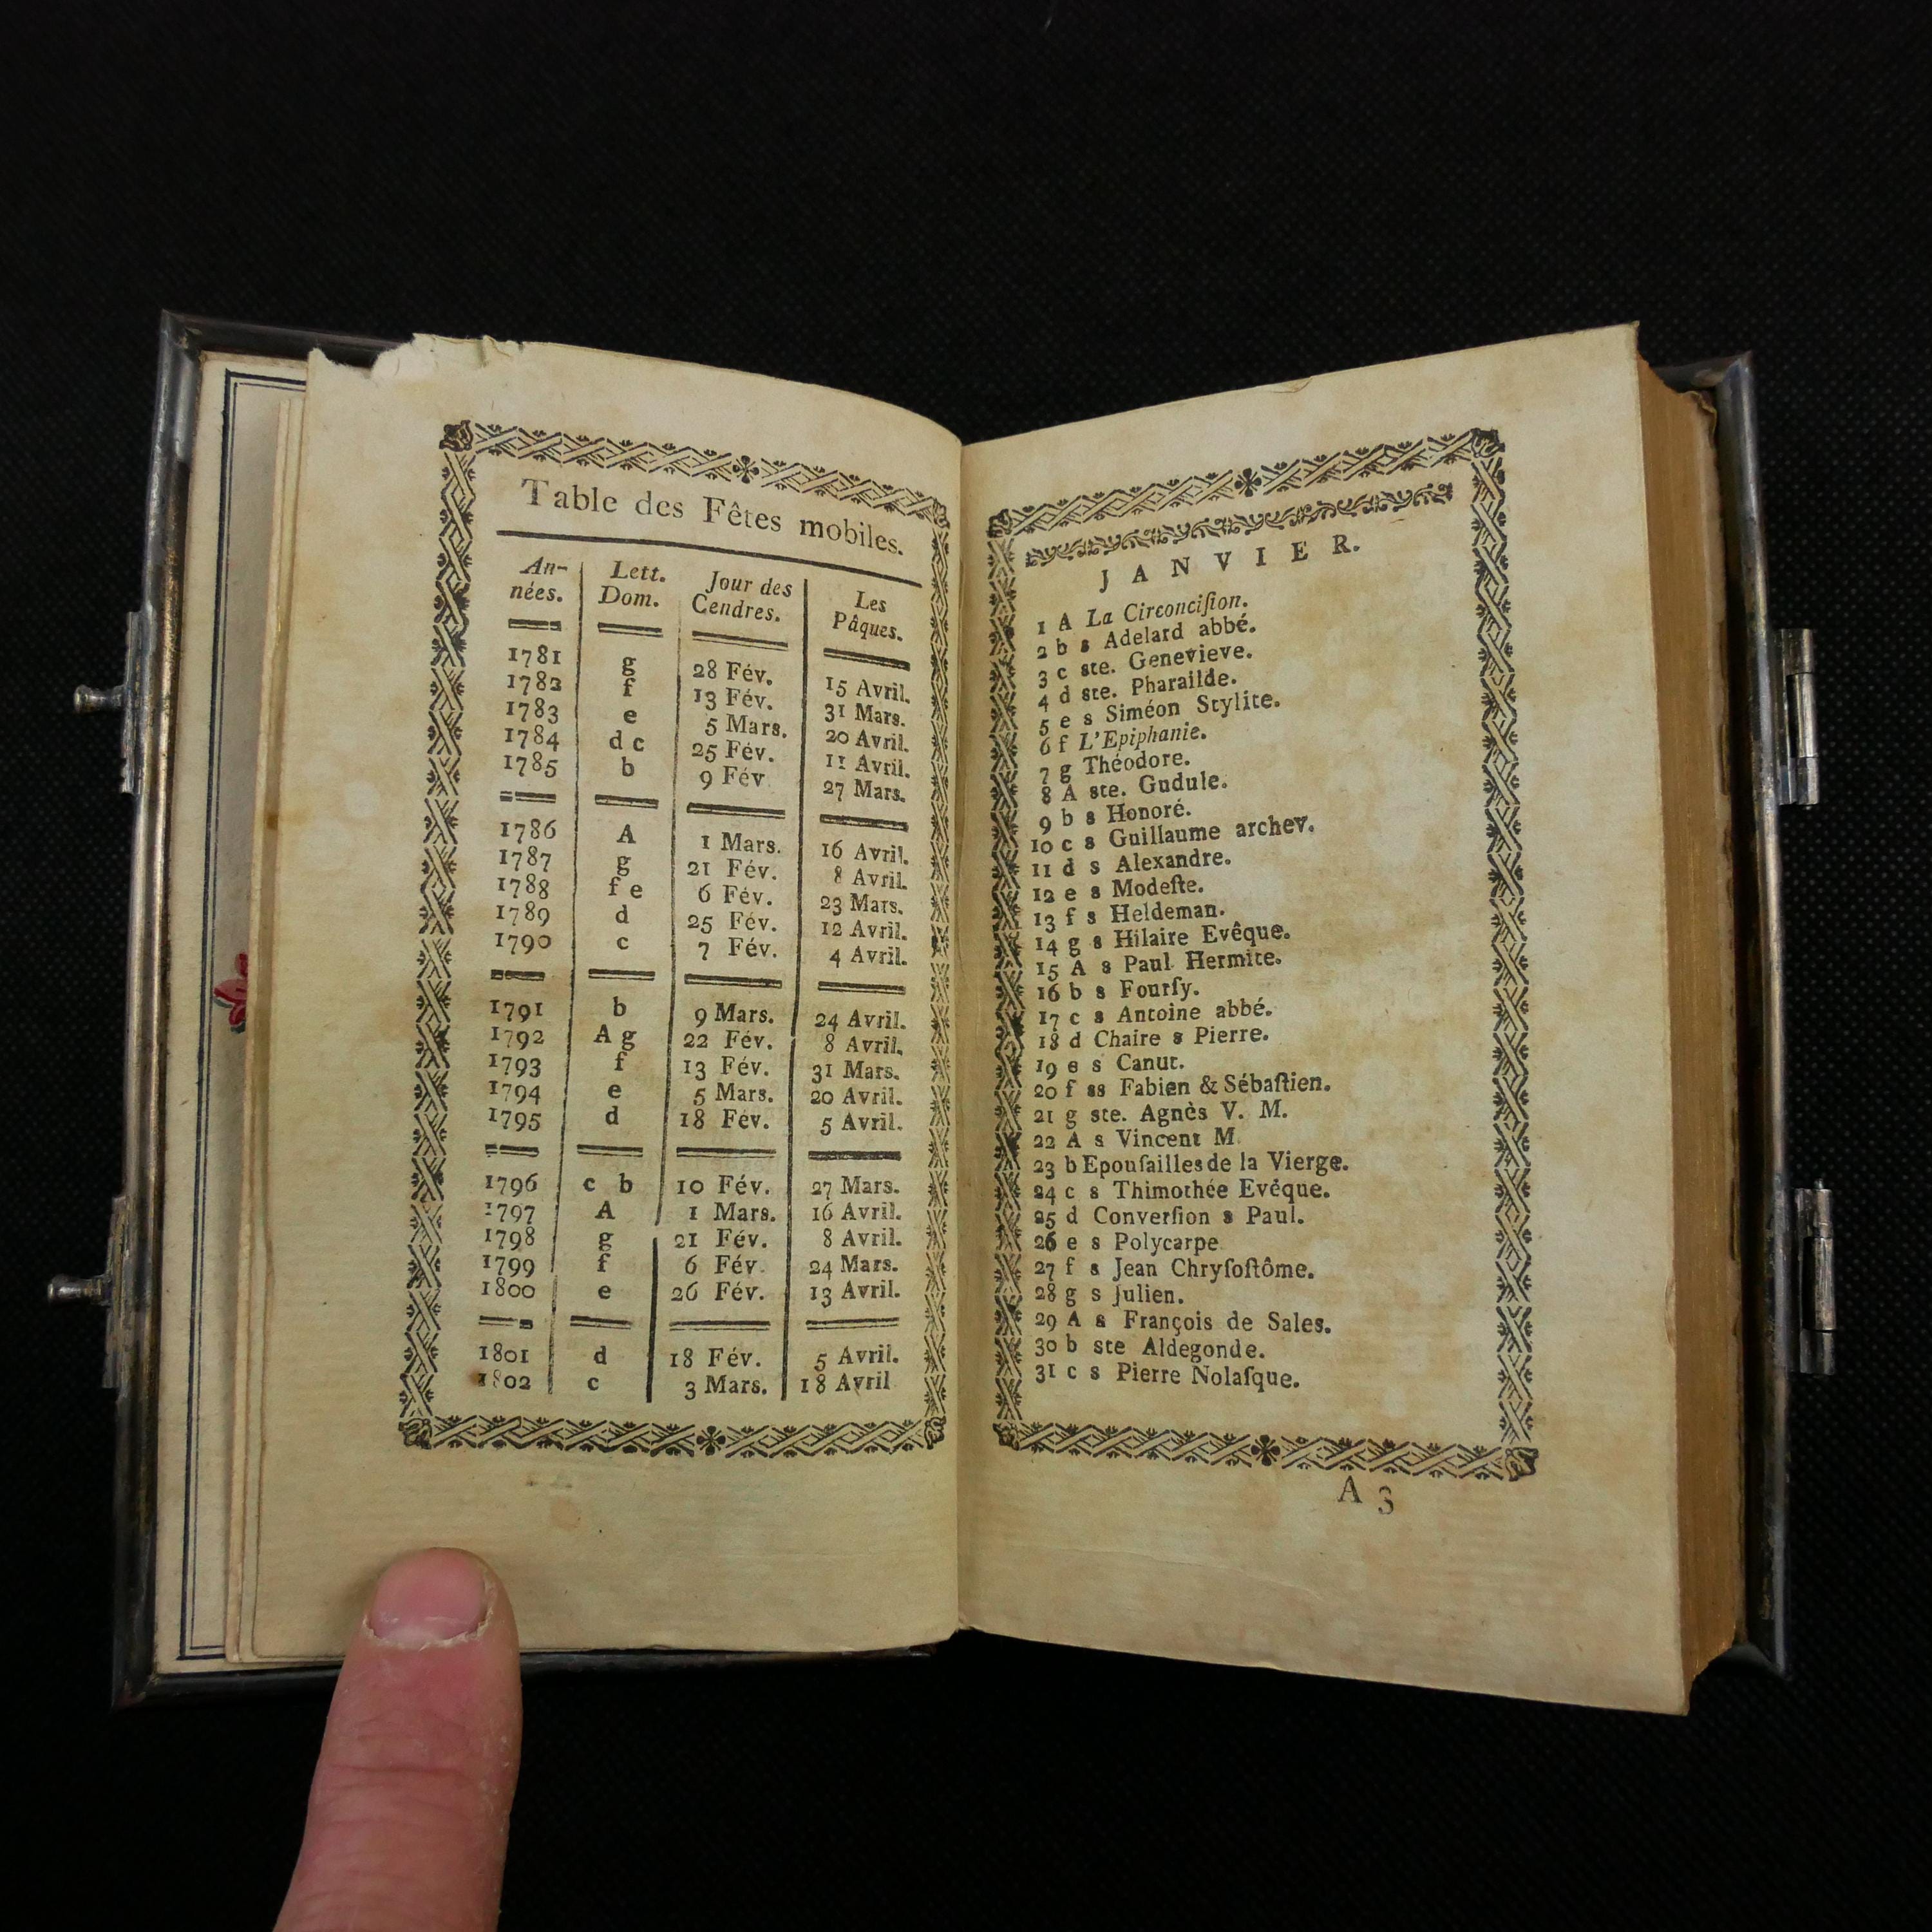 Table des Fêtes mobiles.
An-nées. Lett. Dom. Jour des Cendres. Les Pâques.
1781 g 28 Fév. 15 Avril.
1782 f 13 Fév. 31 Mars.
1783 e 5 Mars. 20 Avril.
1784 d c 25 Fév. 11 Avril.
1785 b 9 Fév 27 Mars.
1786 A 1 Mars. 16 Avril.
1787 g 21 Fév. 8 Avril.
1788 f e 6 Fév. 23 Mars.
1789 d 25 Fév. 12 Avril.
1790 c 7 Fév. 4 Avril.
1791 b 9 Mars. 24 Avril.
1792 A g 22 Fév. 8 Avril.
1793 f 13 Fév. 31 Mars.
1794 e 5 Mars. 20 Avril.
1795 d 18 Fév. 5 Avril.
1796 c b 10 Fév. 27 Mars.
1797 A 1 Mars. 16 Avril.
1798 g 21 Fév. 8 Avril.
1799 f 6 Fév. 24 Mars.
1800 e 26 Fév. 13 Avril.
1801 d 18 Fév. 5 Avril.
1802 c 3 Mars. 18 Avril
JANVIER.
1 A La Circonciſion.
2 b s Adelard abbé.
3 c ste. Genevieve.
4 d ste. Pharailde.
5 e s Siméon Stylite.
6 f L'Epiphanie.
7 g Théodore.
8 A ste. Gudule.
9 b s Honoré.
10 c s Guillaume archev.
11 d s Alexandre.
12 e s Modeſte.
13 f s Heldeman.
14 g s Hilaire Evêque.
15 A s Paul Hermite.
16 b s Fourſy.
17 c s Antoine abbé.
18 d Chaire s Pierre.
19 e s Canut.
20 f ss Fabien & Sébaſtien.
21 g ste. Agnès V. M.
22 A s Vincent M.
23 b Epouſailles de la Vierge.
24 c s Thimothée Evêque.
25 d Converſion s Paul.
26 e s Polycarpe
27 f s Jean Chryſoſtôme.
28 g s Julien.
29 A s François de Sales.
30 b ste Aldegonde.
31 c s Pierre Nolaſque.
A 3